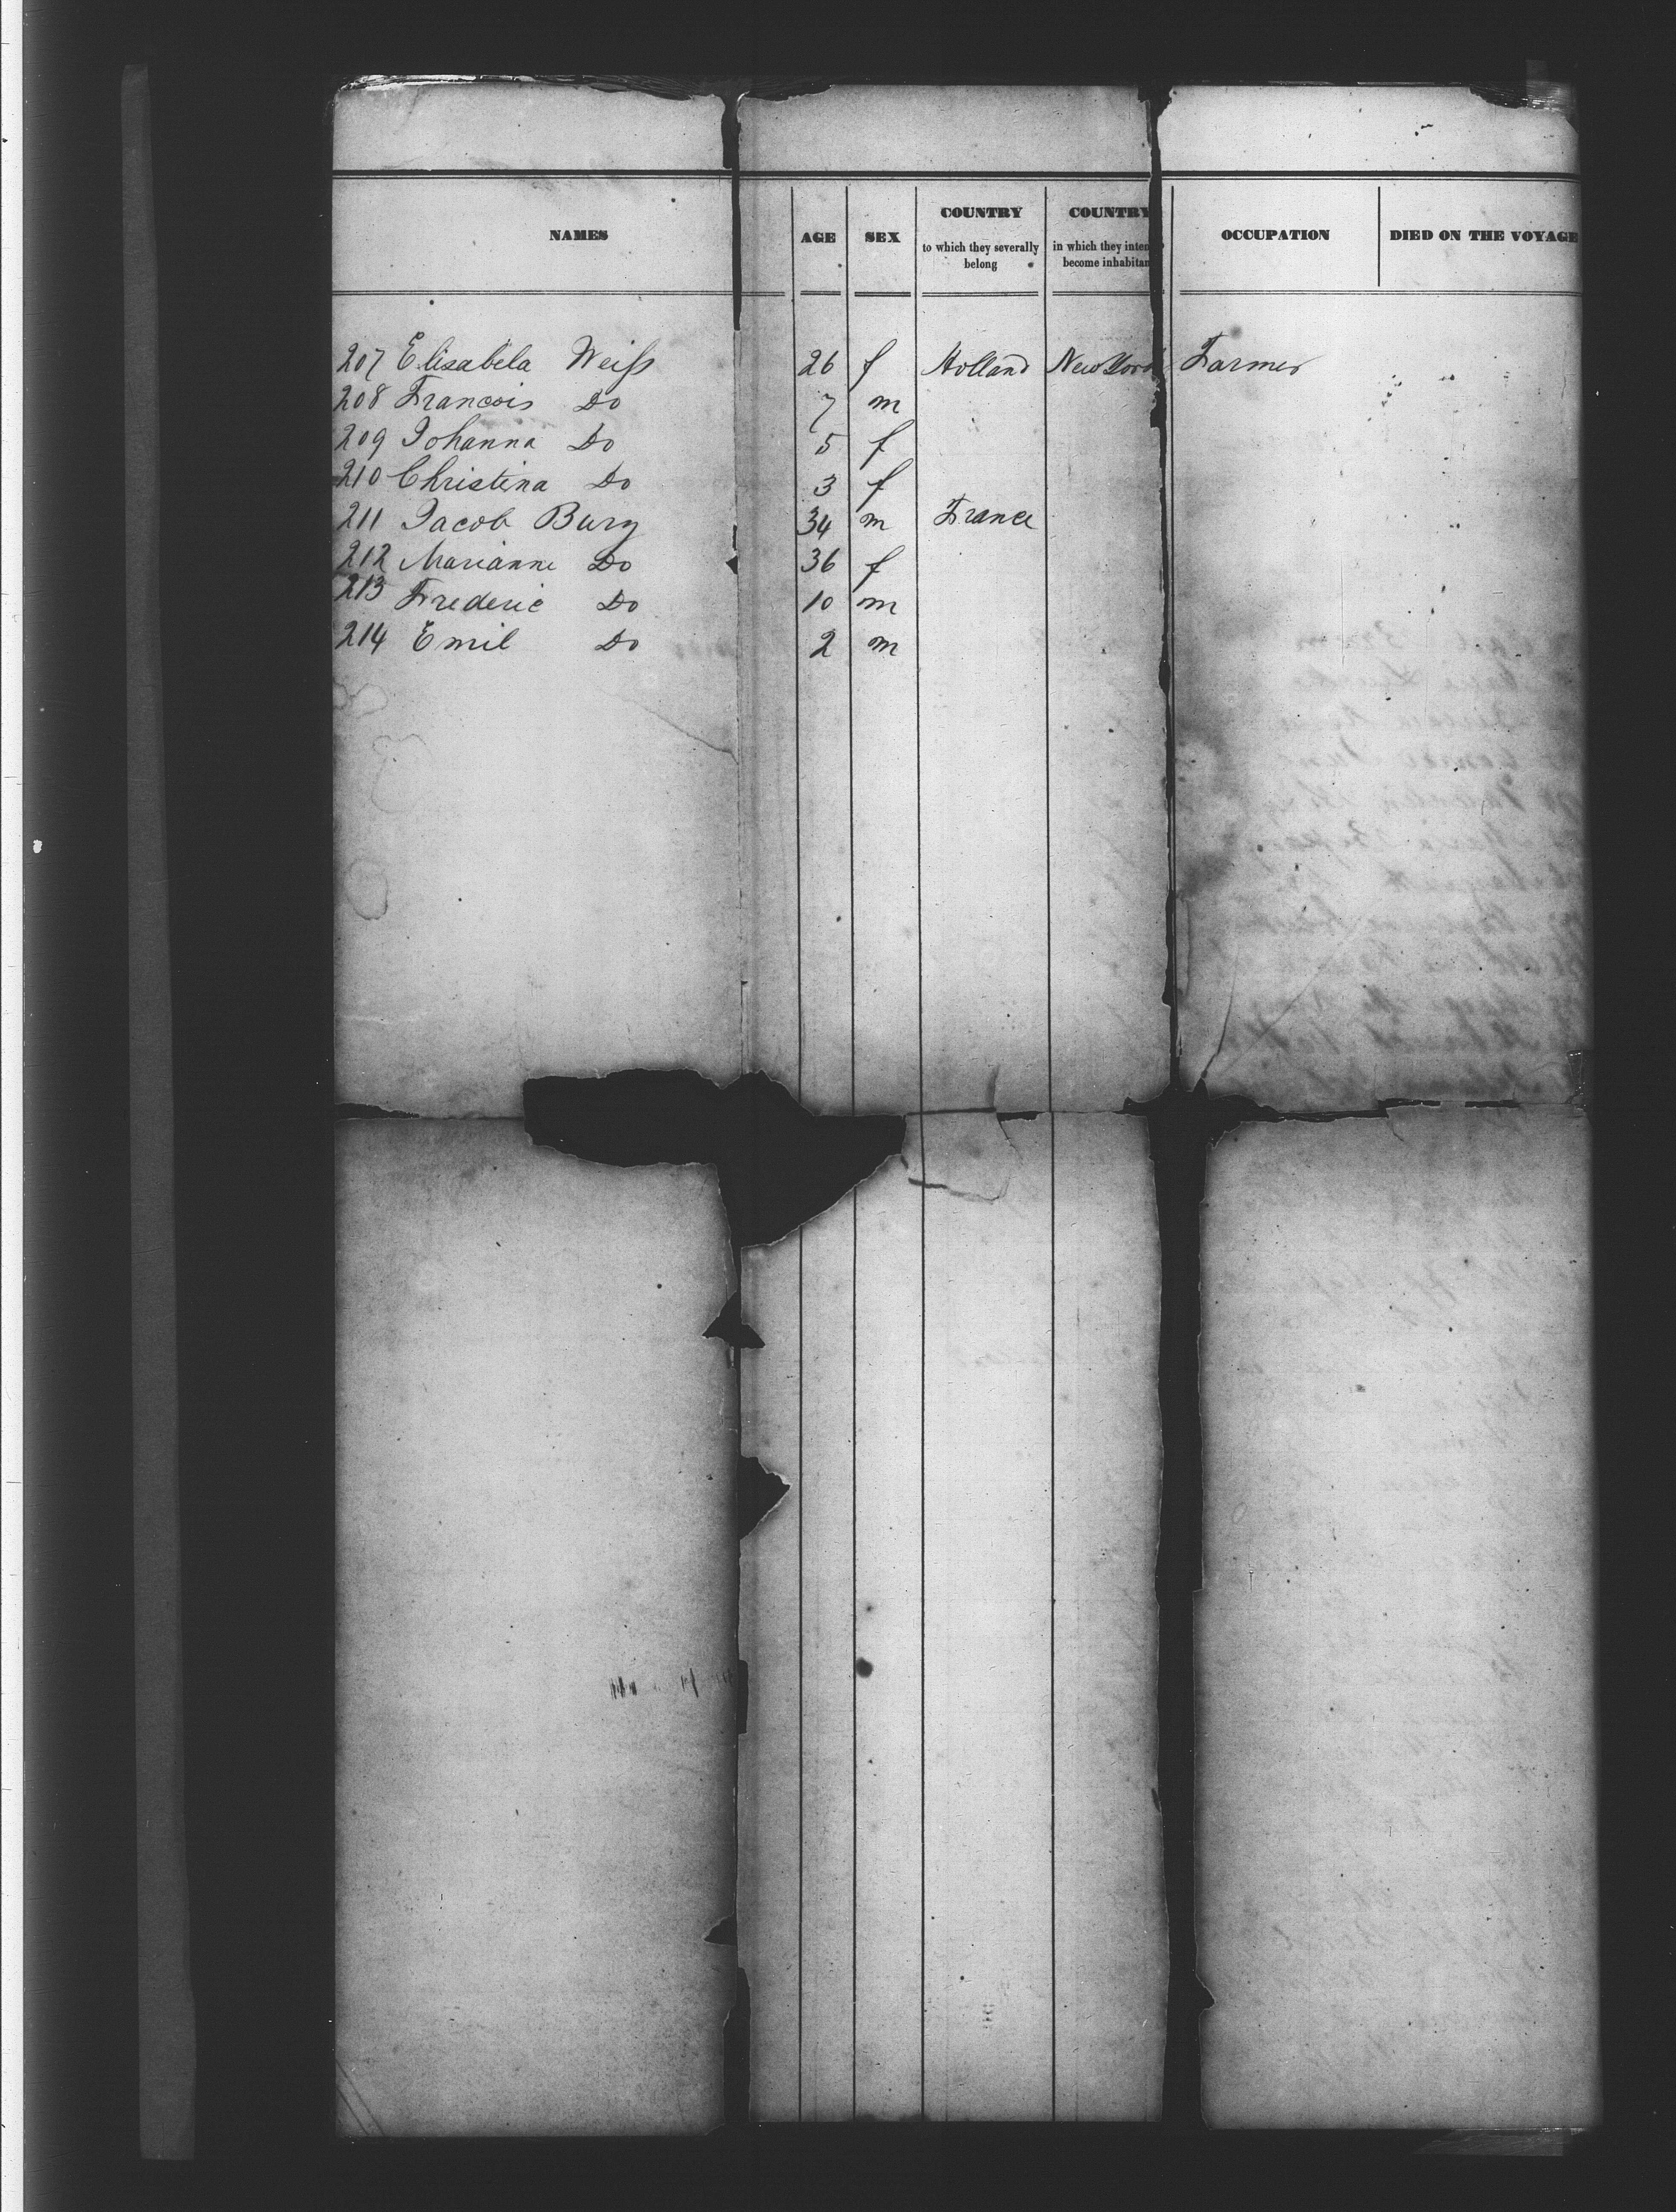 NAMES AGE SEX COUNTRY to which they severally belong COUNTRY in which they inten become inhabitan OCCUPATION DIED ON THE VOYAGE
207 Elisabela Weiſs 26 f Holland New York Farmer
208 Francois Do 7 m
209 Johanna Do 5 f
210 Christina Do 3 f
211 Jacob Burg 34 m France
212 Marianne Do 36 f
213 Frederic Do 10 m
214 Emil Do 2 m